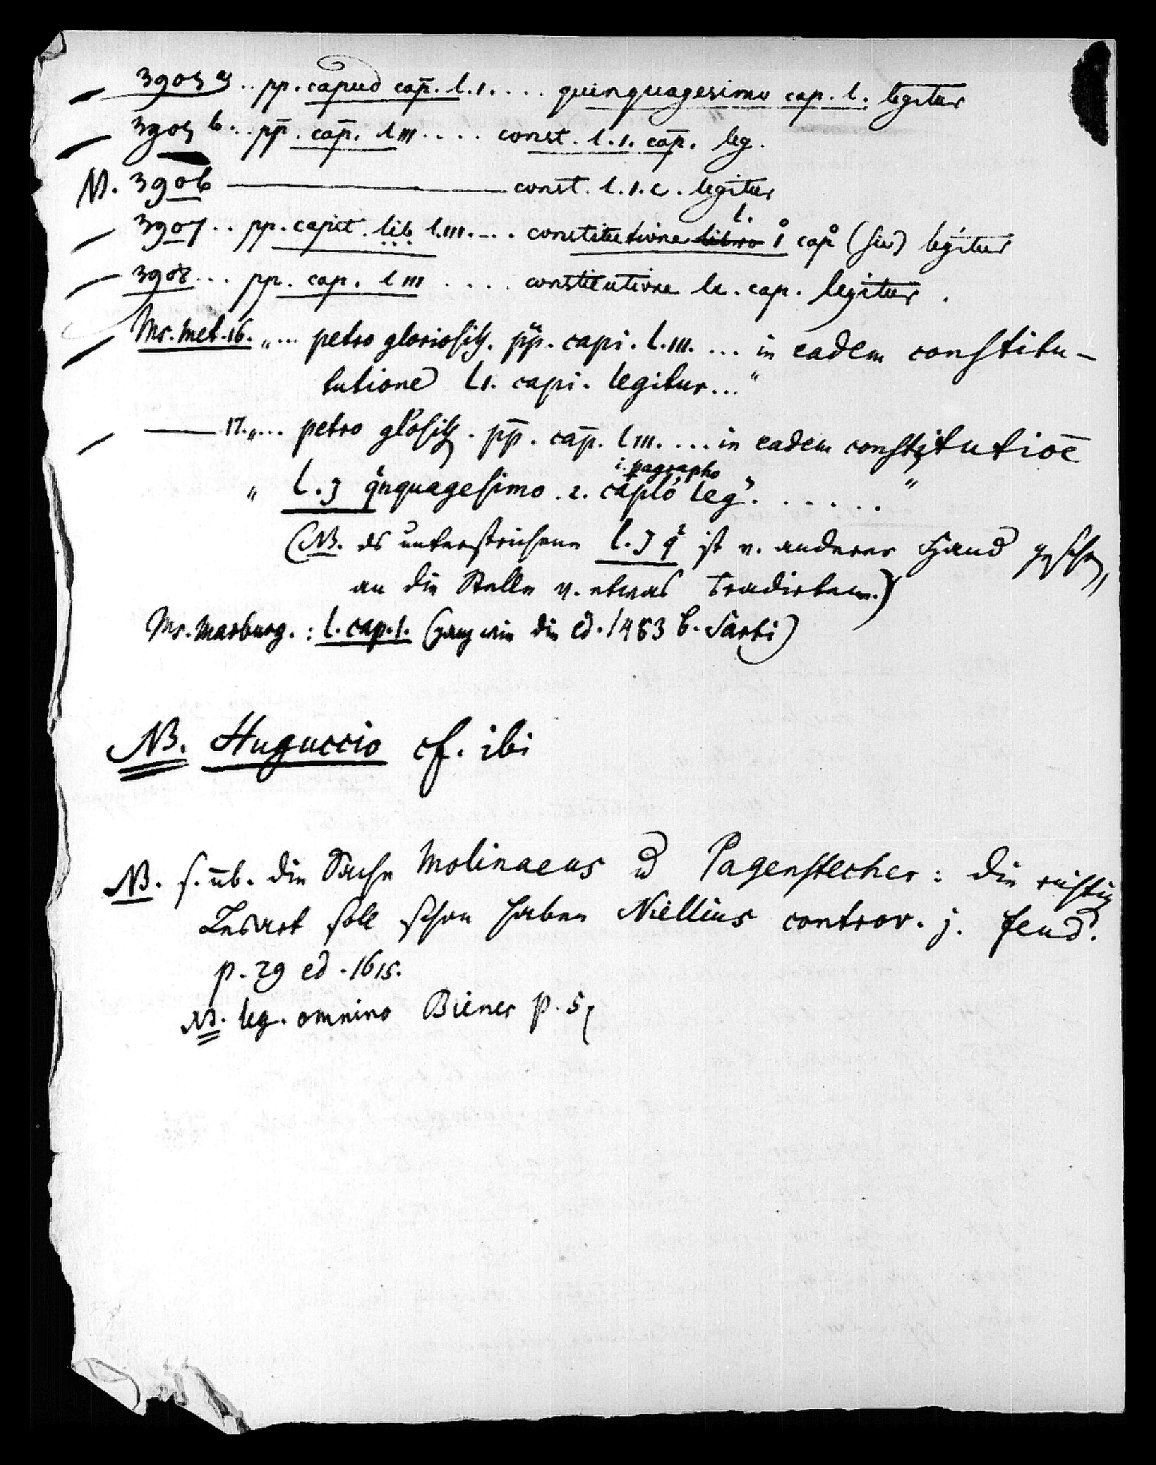 3905 a .. pp. capud cap̄. l.1. .... quinquagesimo cap. l. legitur
3905 b .. pp̄. cap̄. l III .... const. l.1. cap̄. leg.
N. 3906 ——— const. l.1.c. legitur
3907 .. pp. capit. lib l.III. ... constitutione libro l. i° cap° (sic) legitur
3908 ... pp. cap. l III .... constitutione la. cap. legitur.
Ms. Met. 16. „... petro gloriosiss. pp. capi. l.III. ... in eadem constitu-
tutione l1. capi. legitur..."
—— 17. „... petro glosiss. pp̄. cap̄. l III. ... in eadem constitutioē
" l. J qnquagesimo .2. caplo i. pagrapho leg. ..... "
(NB. das unterstrichene l. J q ist v. anderer Hand
an die Stelle v. etwas Tradirtem.)
Ms. Marburg. : l. cap. 1. (ganz wie die ed. 1483 b. Sarti)
NB. Huguccio cf. ibi
NB. s. üb. die Sache Molinaeus u Pagenstecher: die richtig
Lesart soll schon haben Niellius controv. j. feud.
p. 29 ed. 1615.
NB. leg. omnino Biener p. 5